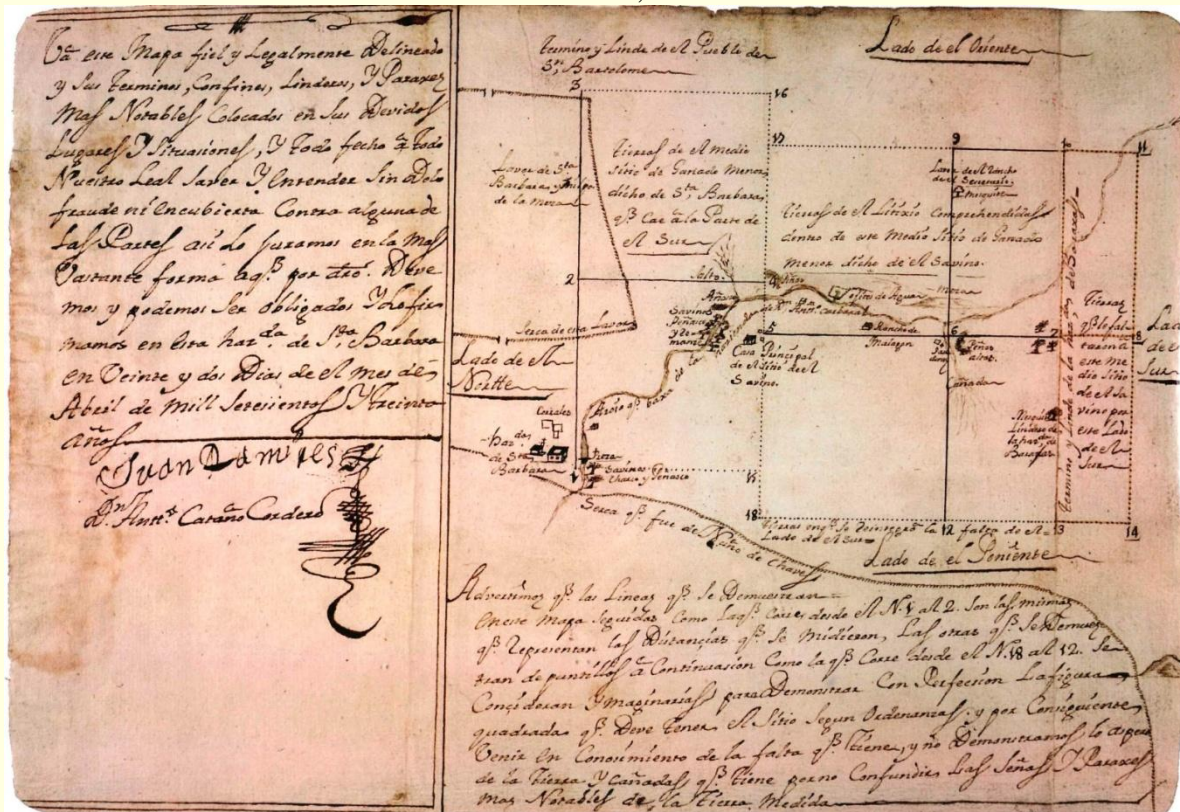 Va este Mapa fiel y Legalmente Delineado
y Sus Terminos, Confines, Linderos, Y Paraxes
Mas Notables Colocados en Sus Devidos
Lugares Y Situaciones, Y todo fecho a todo
Nuestro Leal Saver Y Entender Sin Dolo
fraude ni Encubierta Contra alguna de
Las Partes asi lo juramos en la mas
Vastante forma aq.e por dro. Deve
mos y podemos Ser obligados Y lo fir
mamos en esta haz.da de S.ta Barbara
en Veinte y dos Dias de el mes de
Abril de Mill Setesientos Y treinta
años
Juan Ramires
D.n Antt.o Cataño Cordero
termino y Linde de el Pueblo de
S.n Bartolome
Lado de el Oriente
3
16
17
9
11
Lovor de S.ta
Barbara
de la mora
tierras de el medio
Sitio de Ganado Menor
dicho de S.ta Barbara
q.e Cae a la Parte de
el Sur
Tierras de el Litixio Comprehendidas
dentro de este Medio Sitio de Ganado
menor dicho de el Savino
2
4
5
6
7
8
Serca de esta Lavor
Lado de el
Nortte
Casa Principal
de el Sitio de el
Savino
Rancho de
Malagon
Cañada
Termino y Linde de la haz.da de Bocaraf
Tierras
q.e le fal
tan a
este me
dio Sitio
de el Sa
vino por
este Lado
de el
Sur
Corrales
haz.da
de S.ta
Barbara
Arroio q.e baxa
1
Savinos
15
18
12
13
14
Serca q.e fue de Nuño de Chaves
Tierras en q.e se Reintegra la falta de el
Lado de el Sur
Lado de el Poniente
Advertimos q.e las Lineas q.e Se Demuestran
en este Mapa Seguidas Como la q.e Corre desde el N.1 al 2. Son las mismas
q.e Representan las Distancias q.e Se Midieron, Las otras q.e Se Demues
tran de puntillos a Continuasion Como la q.e Corre desde el N.18 al 12. Se
Consideran Ymaginarias para Demonstrar Con Perfeccion La figura
quadrada q.e Deve tener el Sitio Segun Ordenanzas, y por Consiguiente
Venir en Conosimiento de la falta q.e Tiene, y no Demonstramos lo aspero
de la Tierra Y Cañadas q.e tiene por no Confundir Las Señas Y Paraxes
mas Notables de la Tierra Medida